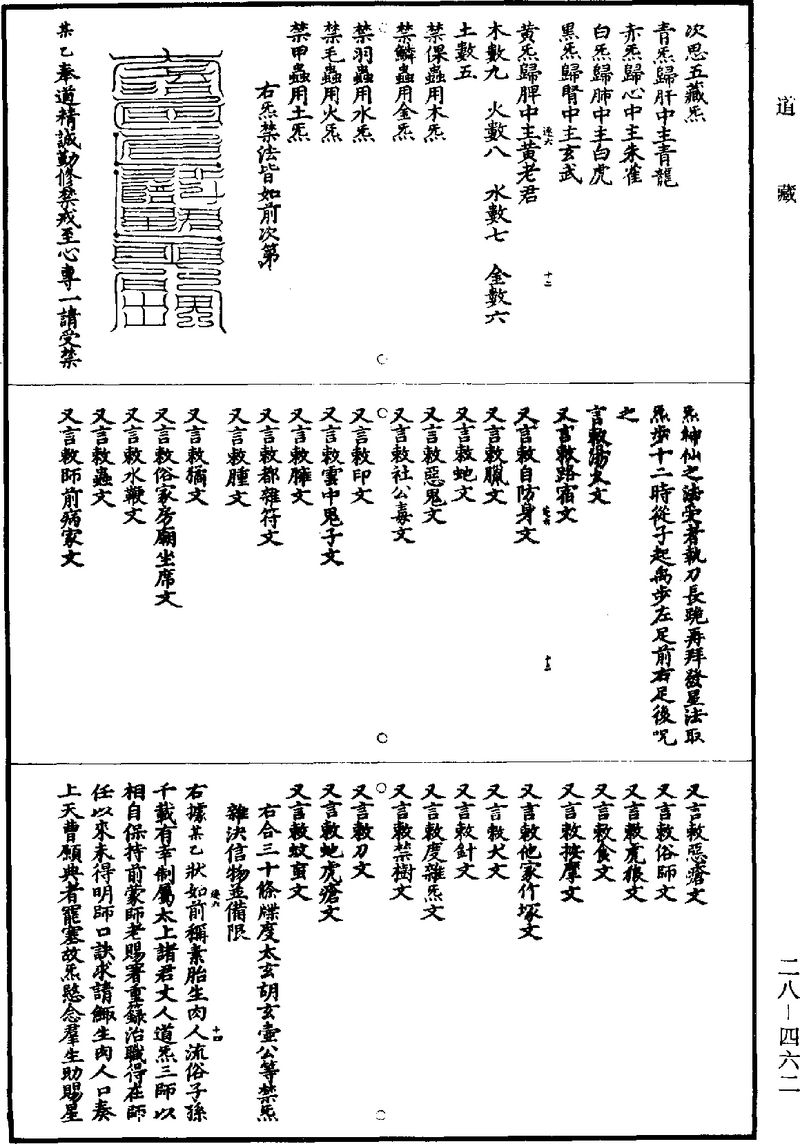 道藏
次思五藏炁
青炁歸肝中主青龍
赤炁歸心中主朱雀
白炁歸肺中主白虎
黑炁歸腎中主玄武
黃炁歸脾中主黃老君
木數九　火數八　水數七　金數六
土數五
禁倮蟲用木炁
禁鱗蟲用金炁
禁羽蟲用水炁
禁毛蟲用火炁
禁甲蟲用土炁
右炁禁法皆如前次第
某乙奉道精誠勤修禁戒至心專一請受禁
炁神仙之法受者執刀長跪再拜發星法取
炁步十二時從子起禹步左足前右足後呪
之
言敕湯火文
又言敕路宿文
又言敕自防身文
十二
又言敕臘文
又言敕虵文
又言敕惡鬼文
又言敕社公毒文
又言敕印文
又言敕雲中鬼子文
又言敕腫文
又言敕都雜符文
又言敕腫文
又言敕俗家房廟坐席文
又言敕水鞭文
又言敕蟲文
又言敕師前病家文
十三
又言敕惡瘡文
又言敕俗師文
又言敕虎狼文
又言敕食文
又言敕按摩文
又言敕他家作塚文
又言敕犬文
又言敕針文
又言度雜炁文
又言敕禁樹文
又言敕刀文
又言敕虵虎瘡文
又言敕蚊䖟文
右合三十條牒度太玄胡玄壺公等禁炁
雜決信物並備限
右據某乙狀如前稱素胎生肉人流俗子孫
十四
千載有幸制屬太上諸君丈人道炁三師以
相自保持前蒙師老賜署重籙治職得在師
任以來未得明師口訣求請鯫生肉人口奏
上天曹願典者罷塞故炁愍念羣生助賜星
二八—四六二